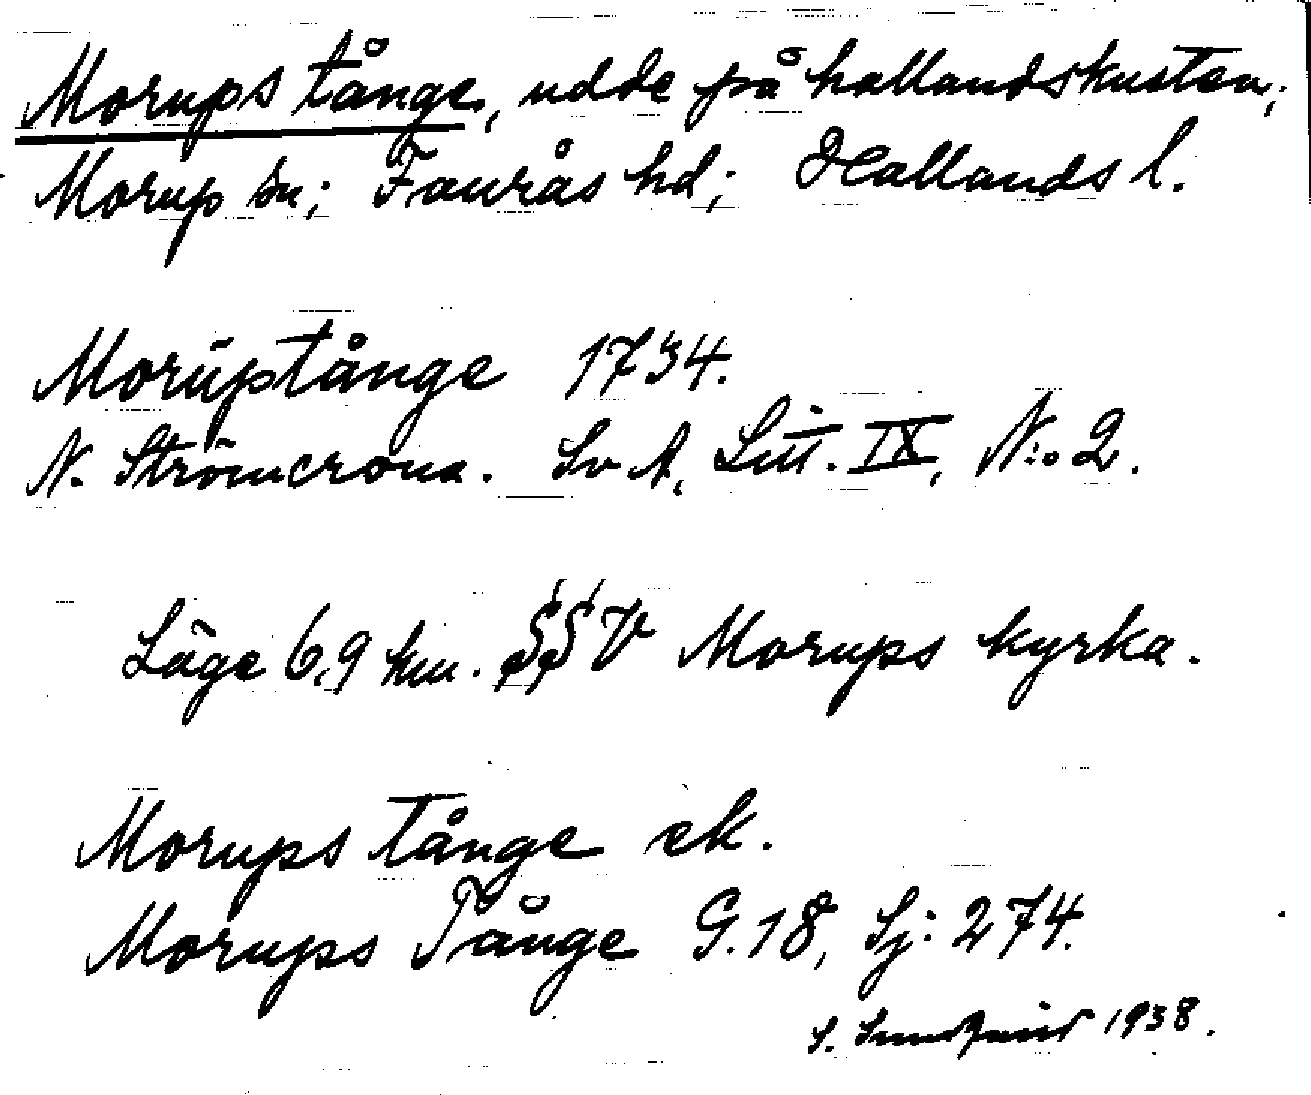 Morups tånge, udde på hallandskusten;
Morup sn; Faurås hd; Hallands l.
Morŭptånge 1734.
N. Strömcrona. Sv A, Litt. IX, N:o 2.
Läge 6,9 km. SSV Morups kyrka.
Morups tånge ek.
Morups Tånge G. 18, Sj: 274.
S. 1938.